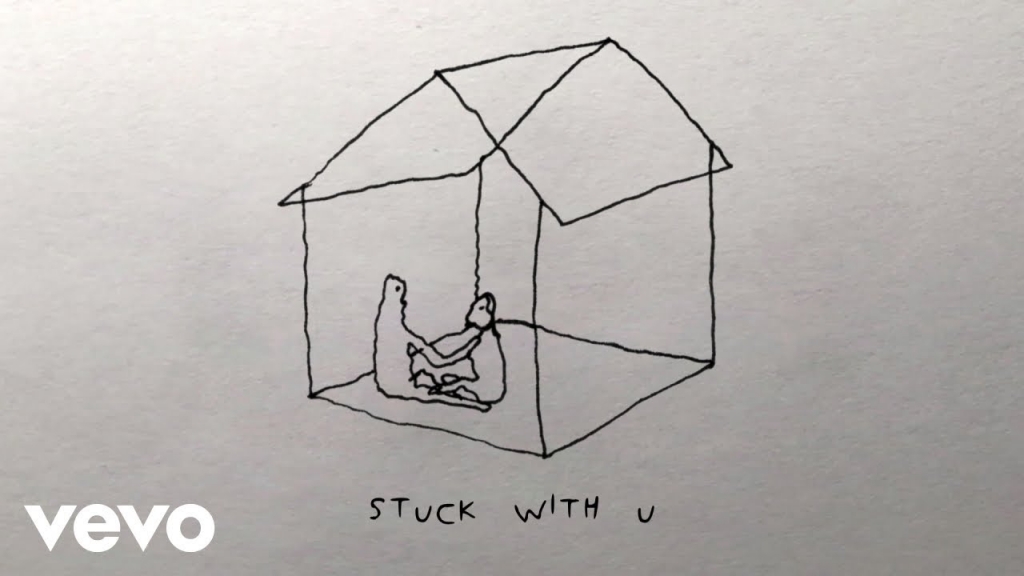 STUCK WITH U
vevo